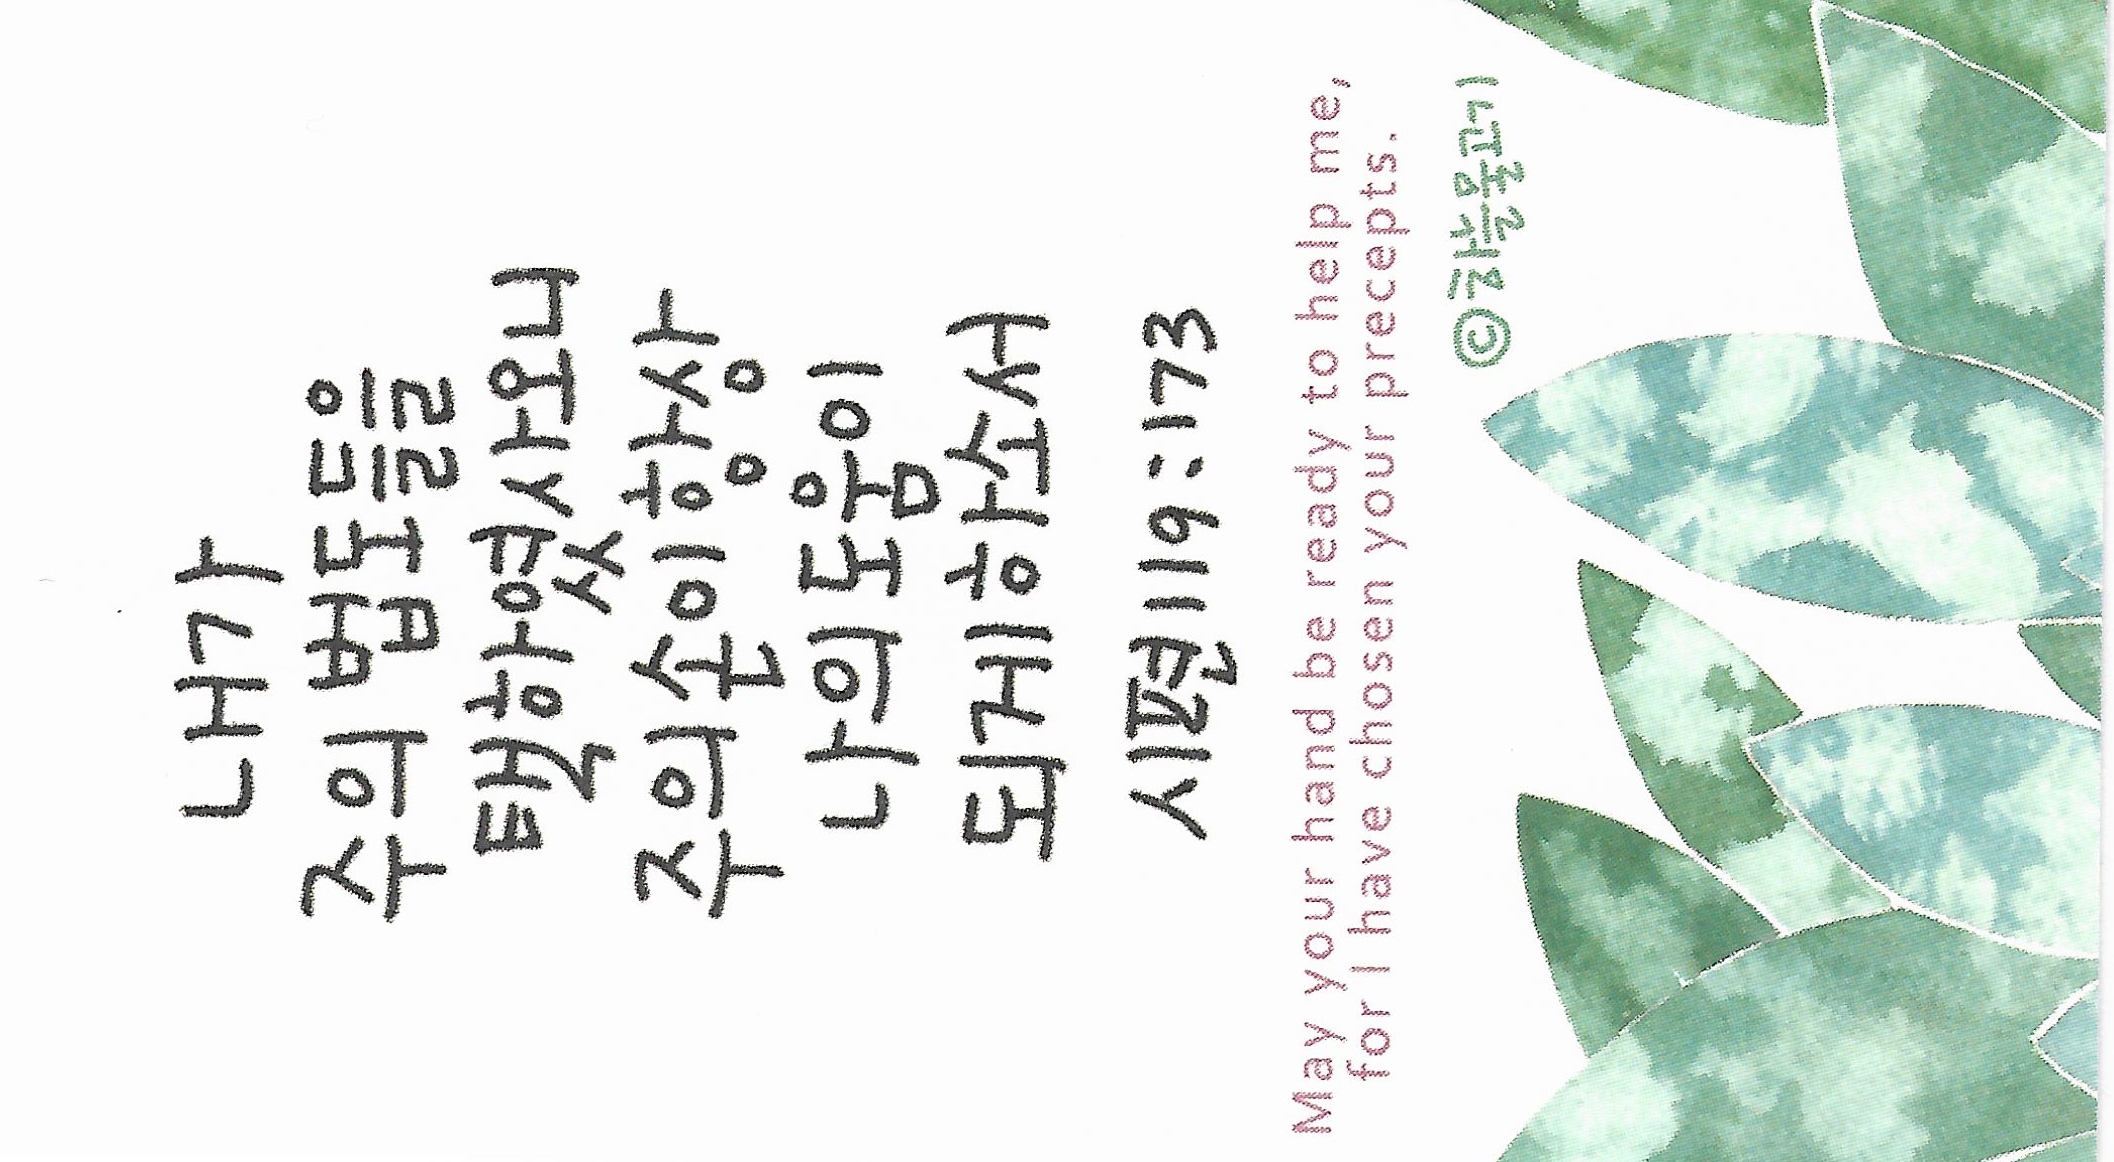 내가
주의 법도들을
택하였사오니
주의 손이 항상
나의 도움이
되게 하소서
시편 119:173
May your hand be ready to help me,
for I have chosen your precepts.
©하늘물고기